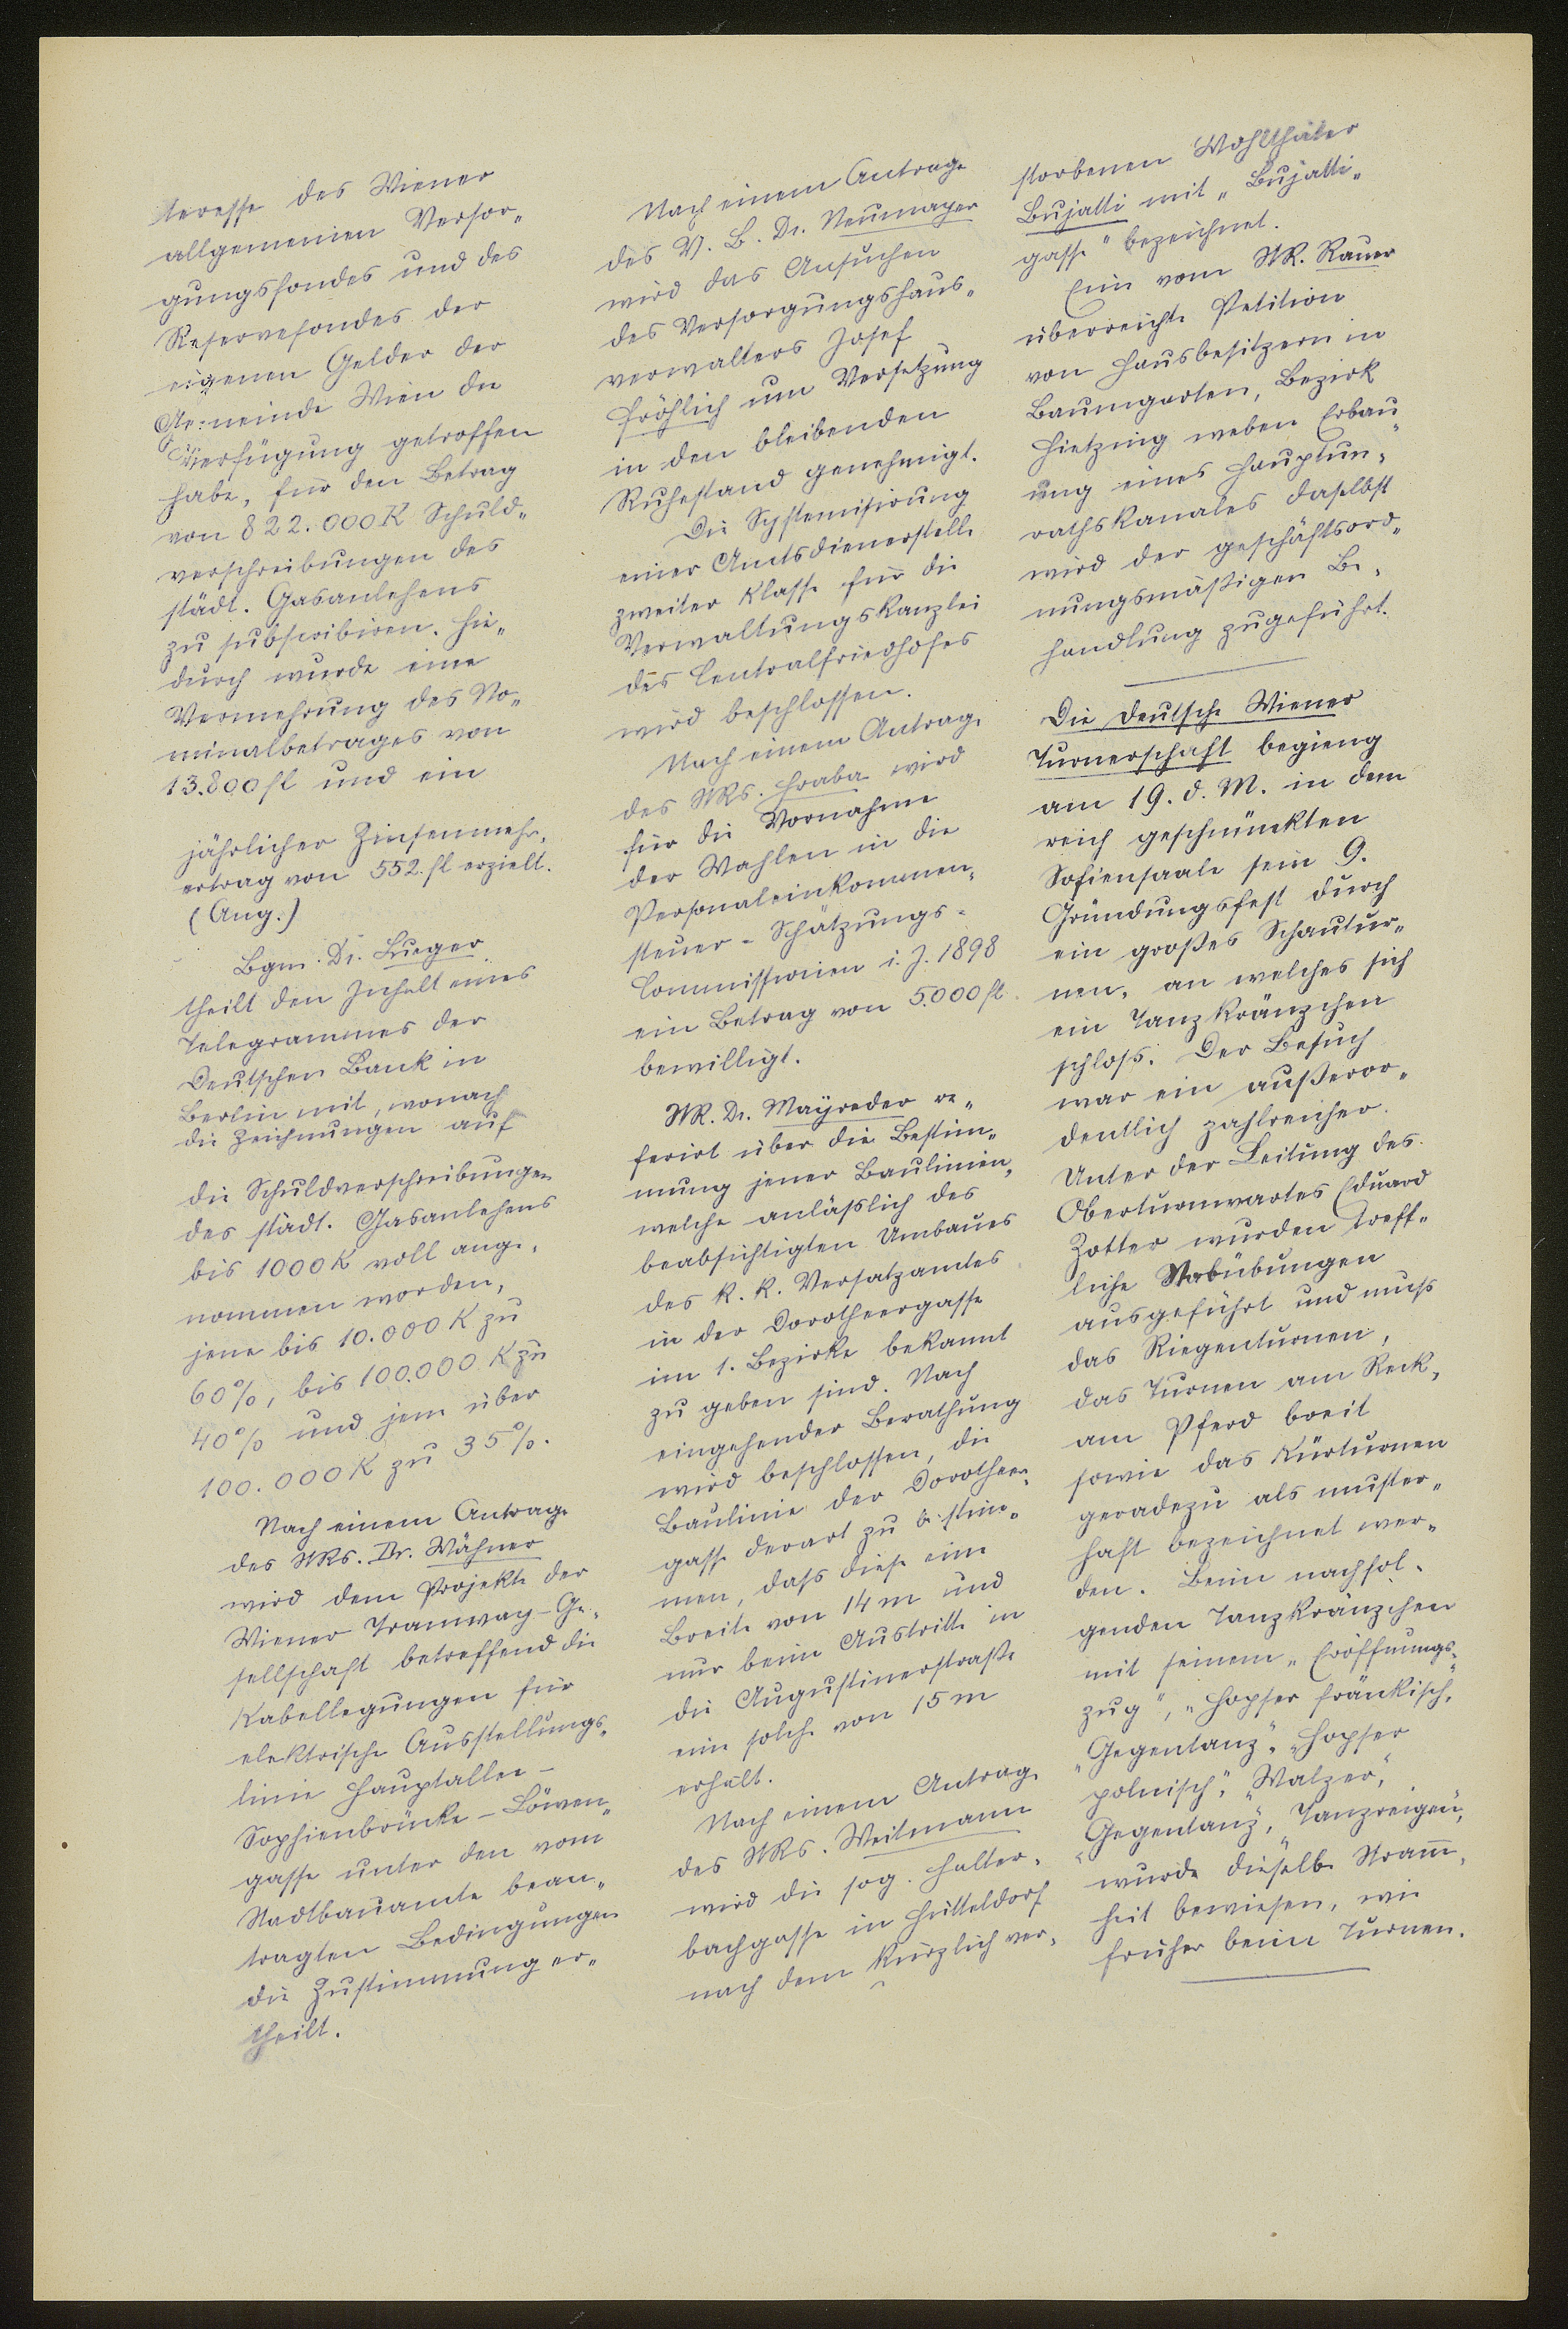 teresse des Wiener
allgemeinen Versor„
gungsfondes und des
Reservefondes der
eigenen Gelder der
Gemeinde Wien die
Verfügung getroffen
habe, für den Betrag
von 822.000K Schuld„
verschreibungen des
städt. Gasanlehens
zu subscribiren. Hie„
durch wurde eine
Vermehrung des No„
minalbetrages von
13.800 fl und ein
jährlicher Zinsenmehr„
ertrag von 552. fl erzielt.
(Ang.)
Bgm. Dr. Lueger
theilt den Inhalt eines
Telegrammes der
Deutschen Bank in
Berlin mit, wonach
die Zeichnungen auf
die Schuldverschreibungen
des städt. Gasanlehens
bis 1000K voll ange„
nommen worden,
jene bis 10.000K zu
60%, bis 100.000 K zu
40% und jene über
100.000K zu 35%.
Nach einem Antrage
des StRs. Dr. Wähner
wird dem Projekte der
Wiener Tramway-Ge„
sellschaft betreffend die
Kabellegungen für
elektrische Ausstellungs„
linie Hauptallee -
Sophienbrücke - Löwen„
gasse unter den vom
Stadtbauamte bean„
tragten Bedingungen
die Zustimmung er„
theilt.
Nach einem Antrage
des V. B. Dr. Neumayer
wird das Ansuchen
des Versorgungshaus„
verwalters Josef
Fröhlich um Versetzung
in den bleibenden
Ruhestand genehmigt.
Die Systemisirung
einer Amtsdienerstelle
zweiter Klasse für die
Verwaltungskanzlei
des Centralfriedhofes
wird beschlossen.
Nach einem Antrage
des StRs. Hraba wird
für die Vornahme
der Wahlen in die
Personaleinkommen„
steuer - Schätzungs-
Commissionen i. J. 1898
ein Betrag von 5.000 fl.
bewilligt.
StR. Dr. Mayreder re„
ferirt über die Bestim„
mung jener Baulinien,
welche anläßlich des
beabsichtigten Umbaues
des k. k. Versatzamtes
in der Dorotheergasse
im 1. Bezirke bekannt
zu geben sind. Nach
eingehender Berathung
wird beschlossen, die
Baulinie der Dorotheer„
gasse derart zu bestim„
men, daß diese eine
Breite von 14m und
nur beim Austritte in
die Augustinerstraße
eine solche von 15m
erhält.
Nach einem Antrage
des StRs. Weitmann
wird die sog. Halter„
bachgasse in Hütteldorf
nach dem kürzlich ver„
storbenen Wohlthäter
Bujatti mit „Bujatti„
gasse" bezeichnet.
Eine vom StR. Rauer
überreichte Petition
von Hausbesitzern in
Baumgarten, Bezirk
Hietzing weben Erbau„
ung eines Hauptun„
rathskanales daselbst
wird der geschäftsord„
nungsmäßigen Be„
handlung zugeführt.
Die Deutsche Wiener
Turnerschaft begieng
am 19. d. M. in dem
reich geschmückten
Sofiensaale sein 9.
Gründungsfest durch
ein großes Schautur„
nen, an welches sich
ein Tanzkränzchen
schloß. Der Besuch
war ein außeror„
dentlich zahlreicher.
Unter der Leitung des
Oberturnwartes Eduard
Zotter wurden treff„
liche Stabübungen
ausgeführt und muß
das Riegenturnen,
das Turnen am Reck,
am Pferd breit
sowie das Kürturnen
geradezu als muster„
haft bezeichnet wer„
den. Beim nachfol„
genden Tanzkränzchen
mit seinem „Eröffnungs„
zug", „Hopser fränkisch,"
„Gegentanz", „Hopser
polnisch", „Walzer",
„Gegentanz", „Tanzreigen",
wurde dieselbe Stram̄„
heit bewiesen, wie
früher beim Turnen.